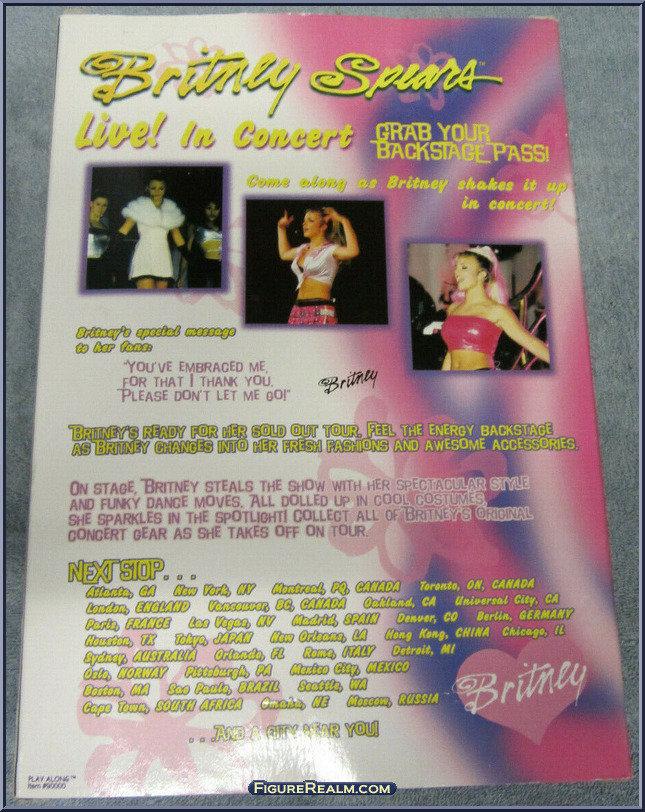 Britney Spears™
Live! In Concert
GRAB YOUR
BACKSTAGE PASS!
Come along as Britney shakes it up
in concert!
Britney's special message
to her fans:
"YOU'VE EMBRACED ME,
FOR THAT I THANK YOU.
PLEASE DON'T LET ME GO!"
Britney
BRITNEY'S READY FOR HER SOLD OUT TOUR. FEEL THE ENERGY BACKSTAGE
AS BRITNEY CHANGES INTO HER FRESH FASHIONS AND AWESOME ACCESSORIES.
ON STAGE, BRITNEY STEALS THE SHOW WITH HER SPECTACULAR STYLE
AND FUNKY DANCE MOVES. ALL DOLLED UP IN COOL COSTUMES,
SHE SPARKLES IN THE SPOTLIGHT! COLLECT ALL OF BRITNEY'S ORIGINAL
CONCERT GEAR AS SHE TAKES OFF ON TOUR.
NEXT STOP . . .
Atlanta, GA New York, NY Montreal, PQ, CANADA Toronto, ON, CANADA
London, ENGLAND Vancouver, BC, CANADA Oakland, CA Universal City, CA
Paris, FRANCE Las Vegas, NV Madrid, SPAIN Denver, CO Berlin, GERMANY
Houston, TX Tokyo, JAPAN New Orleans, LA Hong Kong, CHINA Chicago, IL
Sydney, AUSTRALIA Orlando, FL Rome, ITALY Detroit, MI
Oslo, NORWAY Pittsburgh, PA Mexico City, MEXICO
Boston, MA Sao Paulo, BRAZIL Seattle, WA
Cape Town, SOUTH AFRICA Omaha, NE Moscow, RUSSIA
Britney
. . .AND A CITY NEAR YOU!
PLAY ALONG™
Item #90000
FIGUREREALM.COM